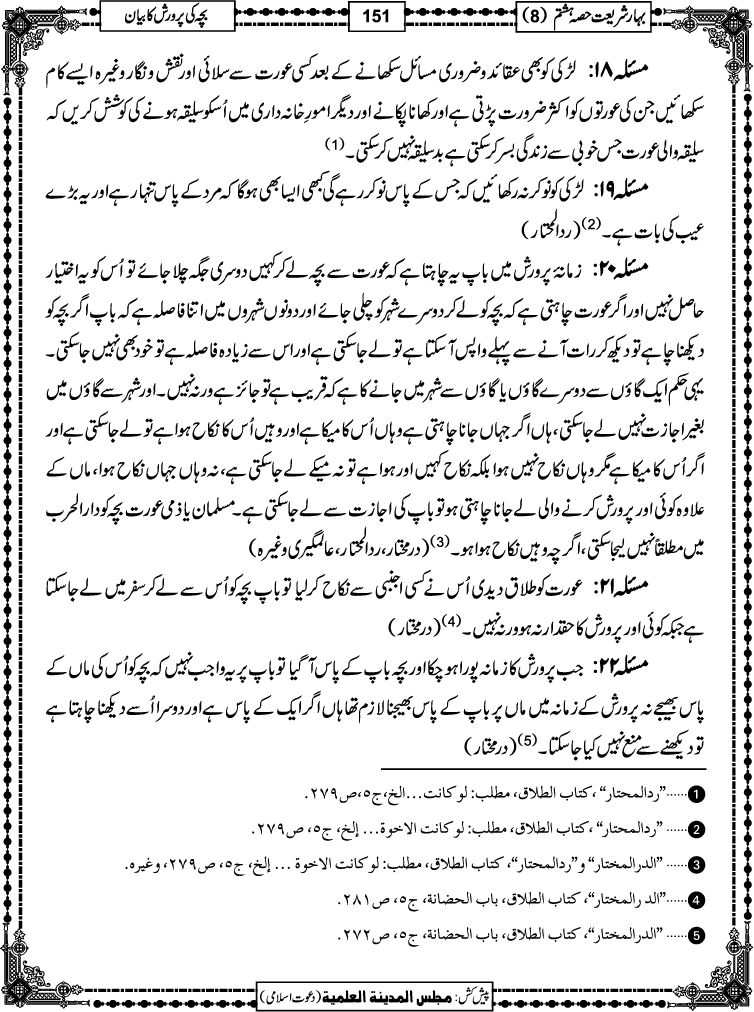 بہارشریعت حصہ ہشتم (8)
151
بچہ کی پرورش کا بیان
مسئلہ ۱۸: لڑکی کو بھی عقائد و ضروری مسائل سکھانے کے بعد کسی عورت سے سلائی اور نقش و نگار وغیرہ ایسے کام
سکھائیں جن کی عورتوں کو اکثر ضرورت پڑتی ہے اور کھانا پکانے اور دیگر امورِ خانہ داری میں اُسکو سلیقہ ہونے کی کوشش کریں کہ
سلیقہ والی عورت جس خوبی سے زندگی بسر کرسکتی ہے بدسلیقہ نہیں کرسکتی۔(1)
مسئلہ ۱۹: لڑکی کو نوکر نہ رکھائیں کہ جس کے پاس نوکر رہے گی کبھی ایسا بھی ہوگا کہ مرد کے پاس تنہا رہے اور یہ بڑے
عیب کی بات ہے۔(2) (ردالمحتار)
مسئلہ ۲۰: زمانۂ پرورش میں باپ یہ چاہتا ہے کہ عورت سے بچہ لے کر کہیں دوسری جگہ چلا جائے تو اُس کو یہ اختیار
حاصل نہیں اور اگر عورت چاہتی ہے کہ بچہ کو لے کر دوسرے شہر کو چلی جائے اور دونوں شہروں میں اتنا فاصلہ ہے کہ باپ اگر بچہ کو
دیکھنا چاہے تو دیکھ کر رات آنے سے پہلے واپس آسکتا ہے تو لے جاسکتی ہے اور اس سے زیادہ فاصلہ ہے تو خود بھی نہیں جاسکتی۔
یہی حکم ایک گاؤں سے دوسرے گاؤں یا گاؤں سے شہر میں جانے کا ہے کہ قریب ہے تو جائز ہے ورنہ نہیں۔ اور شہر سے گاؤں میں
بغیر اجازت نہیں لے جاسکتی، ہاں اگر جہاں جانا چاہتی ہے وہاں اُس کا میکا ہے اور وہیں اُس کا نکاح ہوا ہے تو لے جاسکتی ہے اور
اگر اُس کا میکا ہے مگر وہاں نکاح نہیں ہوا بلکہ نکاح کہیں اور ہوا ہے تو نہ میکے لے جاسکتی ہے، نہ وہاں جہاں نکاح ہوا، ماں کے
علاوہ کوئی اور پرورش کرنے والی لے جانا چاہتی ہو تو باپ کی اجازت سے لے جاسکتی ہے۔ مسلمان یا ذمی عورت بچہ کو دارالحرب
میں مطلقاً نہیں لیجاسکتی، اگرچہ وہیں نکاح ہوا ہو۔(3) (درمختار، ردالمحتار، عالمگیری وغیرہ)
مسئلہ ۲۱: عورت کو طلاق دیدی اُس نے کسی اجنبی سے نکاح کرلیا تو باپ بچہ کو اُس سے لے کر سفر میں لے جاسکتا
ہے جبکہ کوئی اور پرورش کا حقدار نہ ہو ورنہ نہیں۔(4) (درمختار)
مسئلہ ۲۲: جب پرورش کا زمانہ پورا ہوچکا اور بچہ باپ کے پاس آگیا تو باپ پر یہ واجب نہیں کہ بچہ کو اُس کی ماں کے
پاس بھیجے نہ پرورش کے زمانہ میں ماں پر باپ کے پاس بھیجنا لازم تھا ہاں اگر ایک کے پاس ہے اور دوسرا اُسے دیکھنا چاہتا ہے
تو دیکھنے سے منع نہیں کیا جاسکتا۔(5) (درمختار)
1 ......”ردالمحتار“، کتاب الطلاق، مطلب: لو کانت...الخ، ج۵، ص۲۷۹.
2 ...... ”ردالمحتار“، کتاب الطلاق، مطلب: لو کانت الاخوۃ... إلخ، ج۵، ص۲۷۹.
3 ...... ”الدرالمختار“ و”ردالمحتار“، کتاب الطلاق، مطلب: لو کانت الاخوۃ ... إلخ، ج۵، ص۲۷۹، وغیرہ.
4 ......”الد رالمختار“، کتاب الطلاق، باب الحضانۃ، ج۵، ص۲۸۱.
5 ...... ”الدرالمختار“، کتاب الطلاق، باب الحضانۃ، ج۵، ص۲۷۲.
پیش کش: مجلس المدینۃ العلمیۃ (دعوت اسلامی)